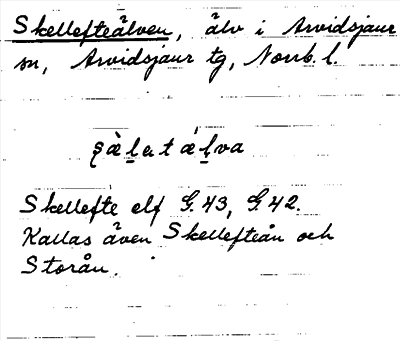 Skellefteälven, älv i Arvidsjaur
sn, Arvidsjaur tg, Norrb. l.
Skellefte elf G.43, G.42.
Kallas även Skellefteån och
Storån.